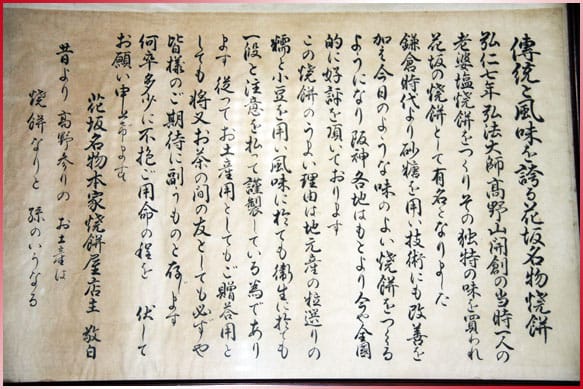 傳統と風味を誇る花坂名物焼餅
弘仁七年弘法大師高野山開創の当時一人の
老婆塩焼餅をつくりその独特の味を買われ
花坂の焼餅として有名となりました
鎌倉時代より砂糖を用い技術にも改善を
加え今日のような味のよい焼餅をつくる
ようになり阪神各地はもとより今や全国
的に好評を頂いております
この焼餅のうまい理由は地元産の粒選りの
糯と小豆を用い風味に於ても衛生に於ても
一段と注意を払って謹製している為であり
ます従ってお土産用としてもご贈答用と
しても将又お茶の間の友としても必ずや
皆様のご期待に副うものと存じます
何卒多少に不抱ご用命の程を 伏して
お願い申し上げます
花坂名物本家焼餅屋店主 敬白
昔より高野参りのお土産は
焼餅なりと 孫のいうなる